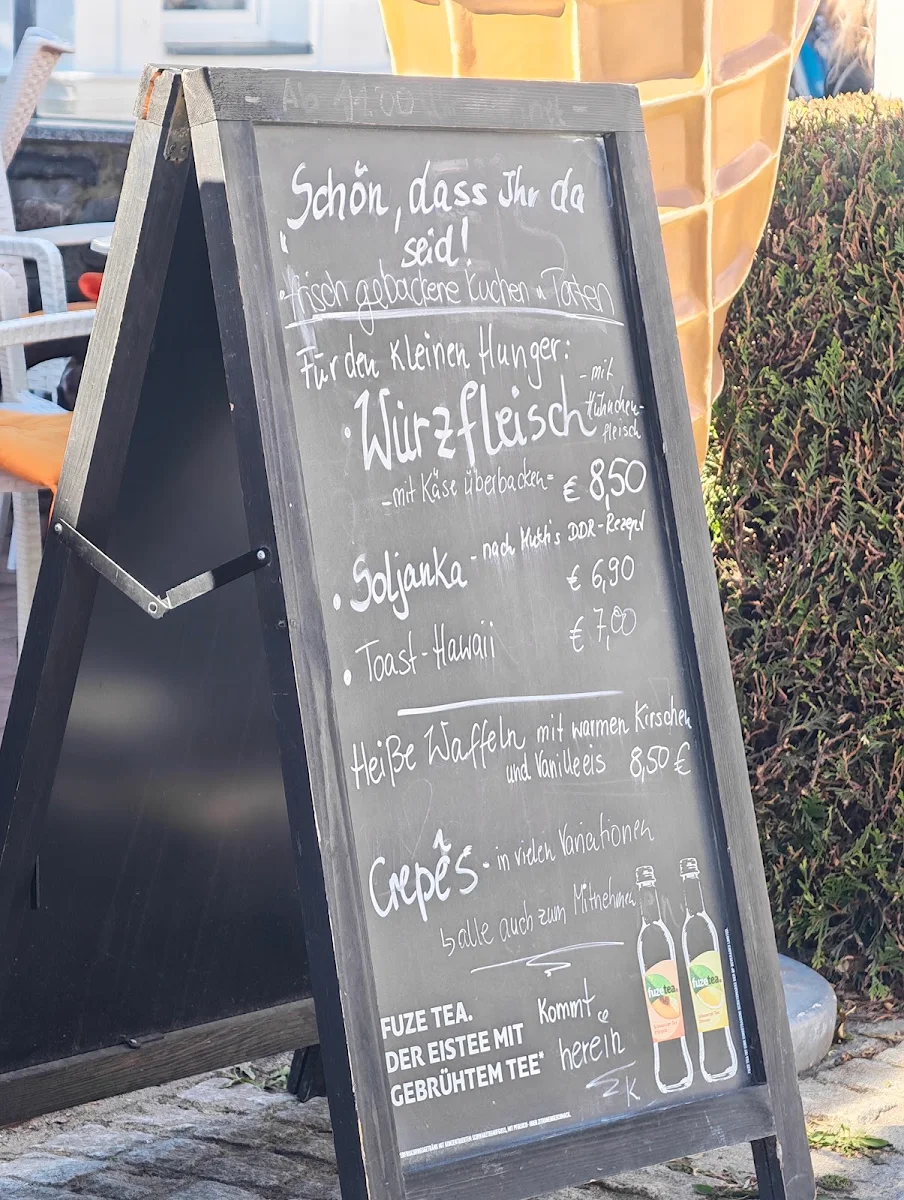 - Ab 11:00
Schön, dass Ihr da
seid!
frisch gebackene Kuchen u Torten
Für den kleinen Hunger:
• Würzfleisch - mit
Hühnchen-
fleisch
- mit Käse überbacken - € 8,50
• Soljanka - nach Mutti's DDR-Rezept
€ 6,90
• Toast-Hawaii € 7,00
Heiße Waffeln mit warmen Kirschen
und Vanilleeis 8,50 €
Crepês - in vielen Variationen
↳ alle auch zum Mitnehmen
FUZE TEA.
DER EISTEE MIT
GEBRÜHTEM TEE*
Kommt
herein
K
fuzetea
fuzetea